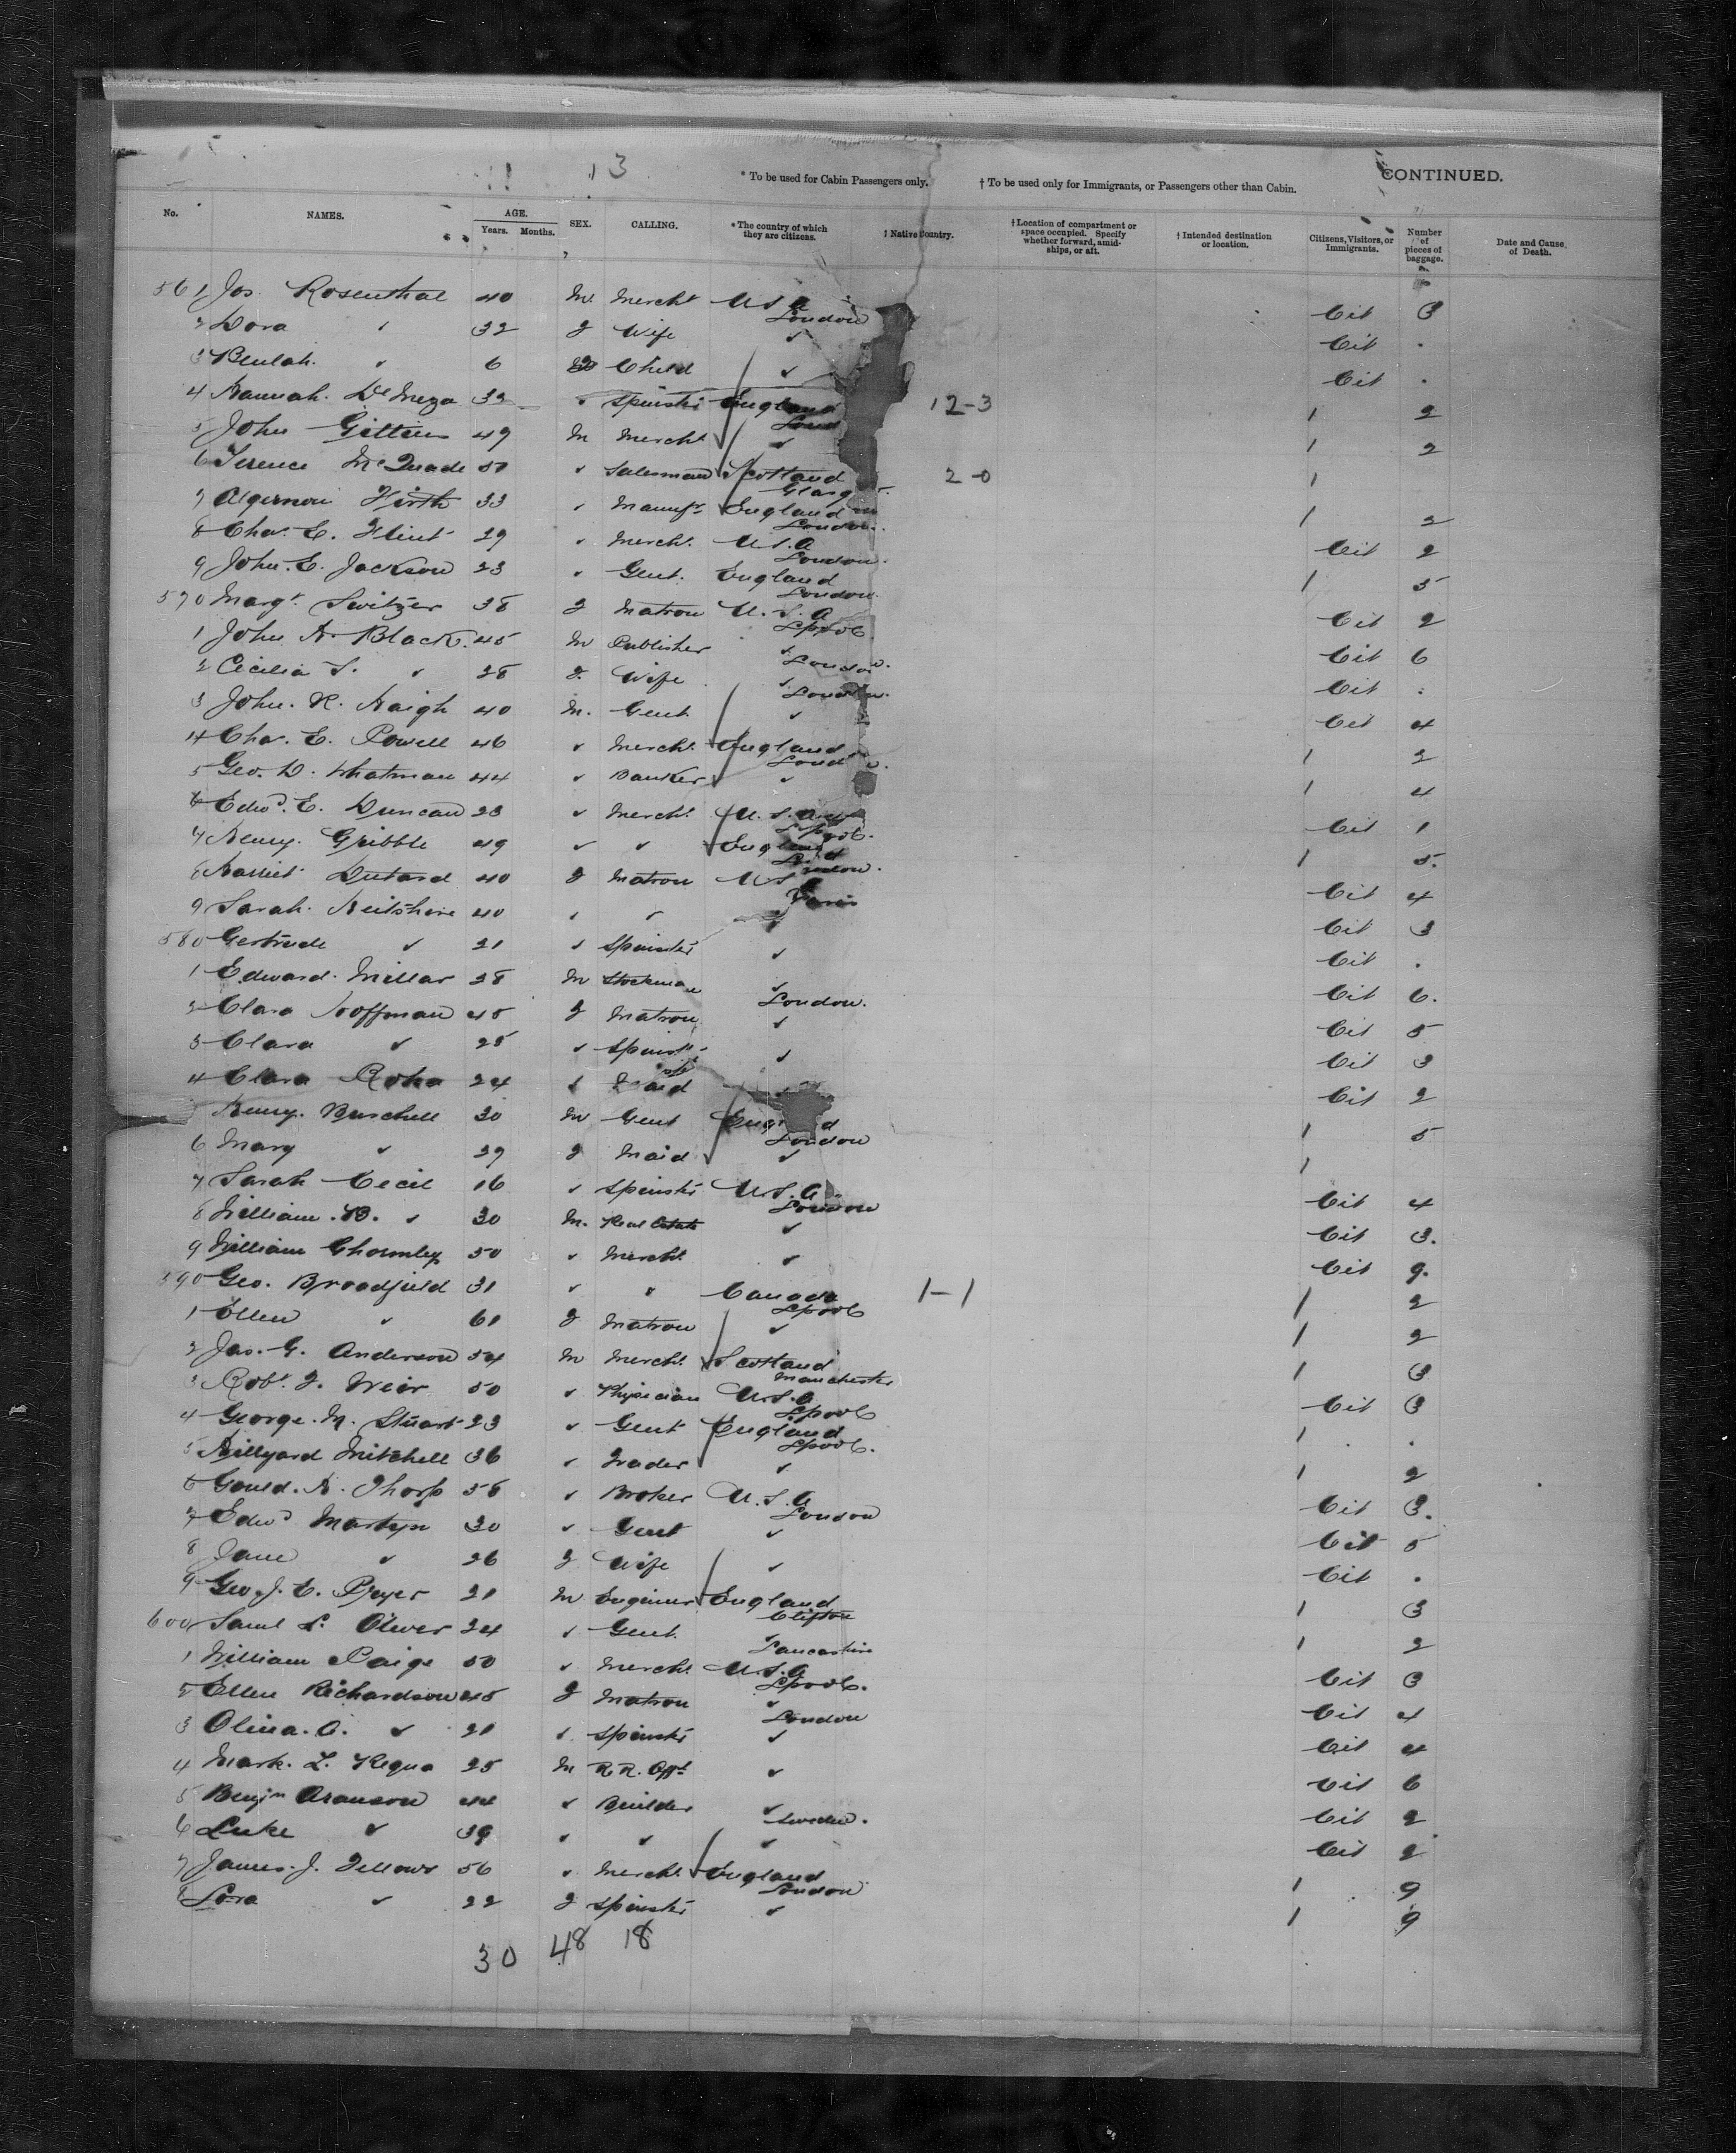 13
* To be used for Cabin Passengers only. † To be used only for Immigrants, or Passengers other than Cabin. CONTINUED.
No. NAMES. AGE. Years. Months. SEX. CALLING. * The country of which they are citizens. † Native Country. † Location of compartment or space occupied. Specify whether forward, amid-ships, or aft. † Intended destination or location. Citizens, Visitors, or Immigrants. Number of pieces of baggage. Date and Cause of Death.
561 Jos. Rosenthal 40 M Mercht U S A London Cit 3
2 Dora " 32 F Wife ✓ Cit .
3 Beulah ✓ 6 Child ✓ Cit .
4 Hannah De Meza 32 ✓ Spinstr England Lond 12-3 1 2
5 John Gittins 49 M Mercht ✓ 1 2
6 Terence McQuade 51 ✓ Salesman Scotland Glasg 2-0 1
7 Algernon Firth 33 ✓ Manufr England London 1 2
8 Chas. E. Flint 29 ✓ Mercht U.S.A London Cit 2
9 John. E. Jackson 23 ✓ Gent. England London 1 5
570 Margt. Switzer 38 F Matron U.S.A Lpool Cit 2
1 John H. Black. 45 M Publisher ✓ London Cit 6
2 Cecilia S. ✓ 28 F Wife ✓ London Cit .
3 John. R. Haigh 40 M. Gent. ✓ Cit 4
4 Chas. E. Powell 46 ✓ Mercht. England Lond 1 2
5 Geo. D. Whatman 44 ✓ Banker ✓ 1 4
6 Edwd. E. Duncan 23 ✓ Mercht. U.S.A Lpool. Cit 1
7 Henry. Gribble 49 ✓ ✓ England London. 1 5.
8 Harriet Dutard 40 F Matron U S Paris Cit 4
9 Sarah. 40 ✓ ✓ ✓ Cit 3
580 Gertrude ✓ 21 ✓ Spinstr ✓ Cit .
1 Edward. Millar 28 M Stockman ✓ London. Cit 6.
2 Clara Hoffman 45 F Matron ✓ Cit 5
3 Clara ✓ 25 ✓ Spinstr ✓ Cit 3
4 Clara 24 ✓ Maid Cit 2
Henry. Burchell 30 M Gent England London 1 5
6 Mary ✓ 29 F Maid ✓ 1
7 Sarah Cecil 16 ✓ Spinstr U.S.A London Cit 4
8 William. B. ✓ 30 M. Real Estate ✓ Cit 3.
9 William Ghormley 50 ✓ Mercht ✓ Cit 9.
590 Geo. Broadfield 31 ✓ " Canada Lpool 1-1 1 2
1 Ellen ✓ 61 F Matron ✓ 1 2
2 Jas. G. Anderson 54 M Mercht. Scotland Manchester 1 3
3 Robt. F. Weir 50 ✓ Physician U.S.A Lpool Cit 3
4 George. M. Stuart 23 ✓ Gent England Lpool. 1 .
5 Hillyard Mitchell 36 ✓ Trader ✓ 1 2
6 Gould. H. Thorp 58 ✓ Broker U.S.A London Cit 3.
7 Edwd Martyn 30 ✓ Gent ✓ Cit 5
8 Jane ✓ 26 F Wife ✓ Cit .
9 Geo. J. C. Pryer 21 M Engineer England Clifton 1 3
600 Saml L. Oliver 24 ✓ Gent. ✓ Lancashire 1 2
1 William Paige 50 ✓ Mercht. U.S.A Lpool. Cit 3
2 Ellen Richardson 45 F Matron ✓ London Cit 4
3 Olina. A. ✓ 21 ✓ Spinstr ✓ Cit 4
4 Mark. L. Requa 25 M R.R. ✓ Cit 6
5 Benjn Aronson 44 ✓ Builder ✓ Sweden. Cit 2
6 Luke ✓ 39 ✓ ✓ ✓ Cit 2
7 James. J. Fellows 56 ✓ Mercht. England London 1 9
8 Lora ✓ 22 F Spinstr ✓ 1 9
30 48 18